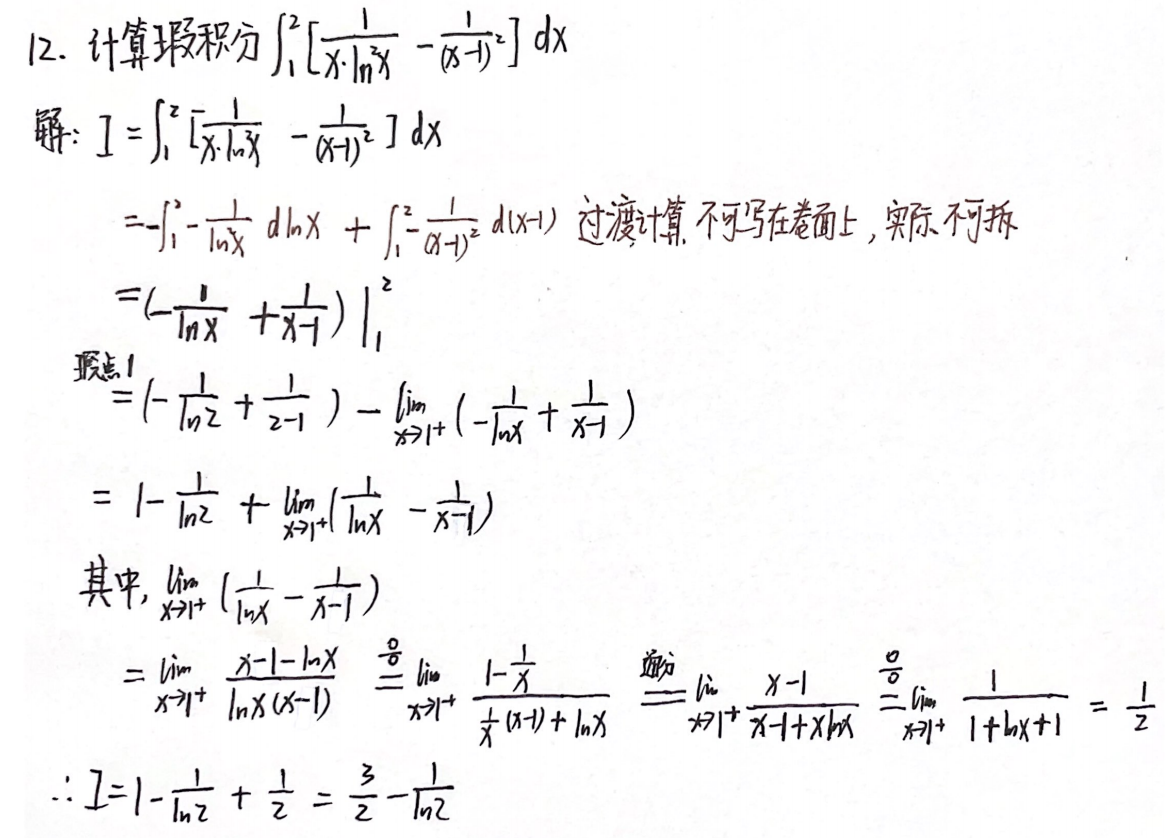 12. 计算瑕积分 ∫₁² [1/(x·ln²x) - 1/(x-1)²] dx
解: I = ∫₁² [1/(x·ln²x) - 1/(x-1)²] dx
= -∫₁² -1/(ln²x) d lnx + ∫₁² -1/(x-1)² d(x-1) 过渡计算 不可写在卷面上, 实际不可拆
= (-1/lnx + 1/(x-1)) |₁²
瑕点1
= (-1/ln2 + 1/(2-1)) - lim x→1⁺ (-1/lnx + 1/(x-1))
= 1 - 1/ln2 + lim x→1⁺ (1/lnx - 1/(x-1))
其中, lim x→1⁺ (1/lnx - 1/(x-1))
= lim x→1⁺ (x-1-lnx)/(lnx(x-1)) =(0/0) lim x→1⁺ (1-1/x)/(1/x(x-1)+lnx) =(通分) lim x→1⁺ (x-1)/(x-1+xlnx) =(0/0) lim x→1⁺ 1/(1+lnx+1) = 1/2
∴ I = 1 - 1/ln2 + 1/2 = 3/2 - 1/ln2